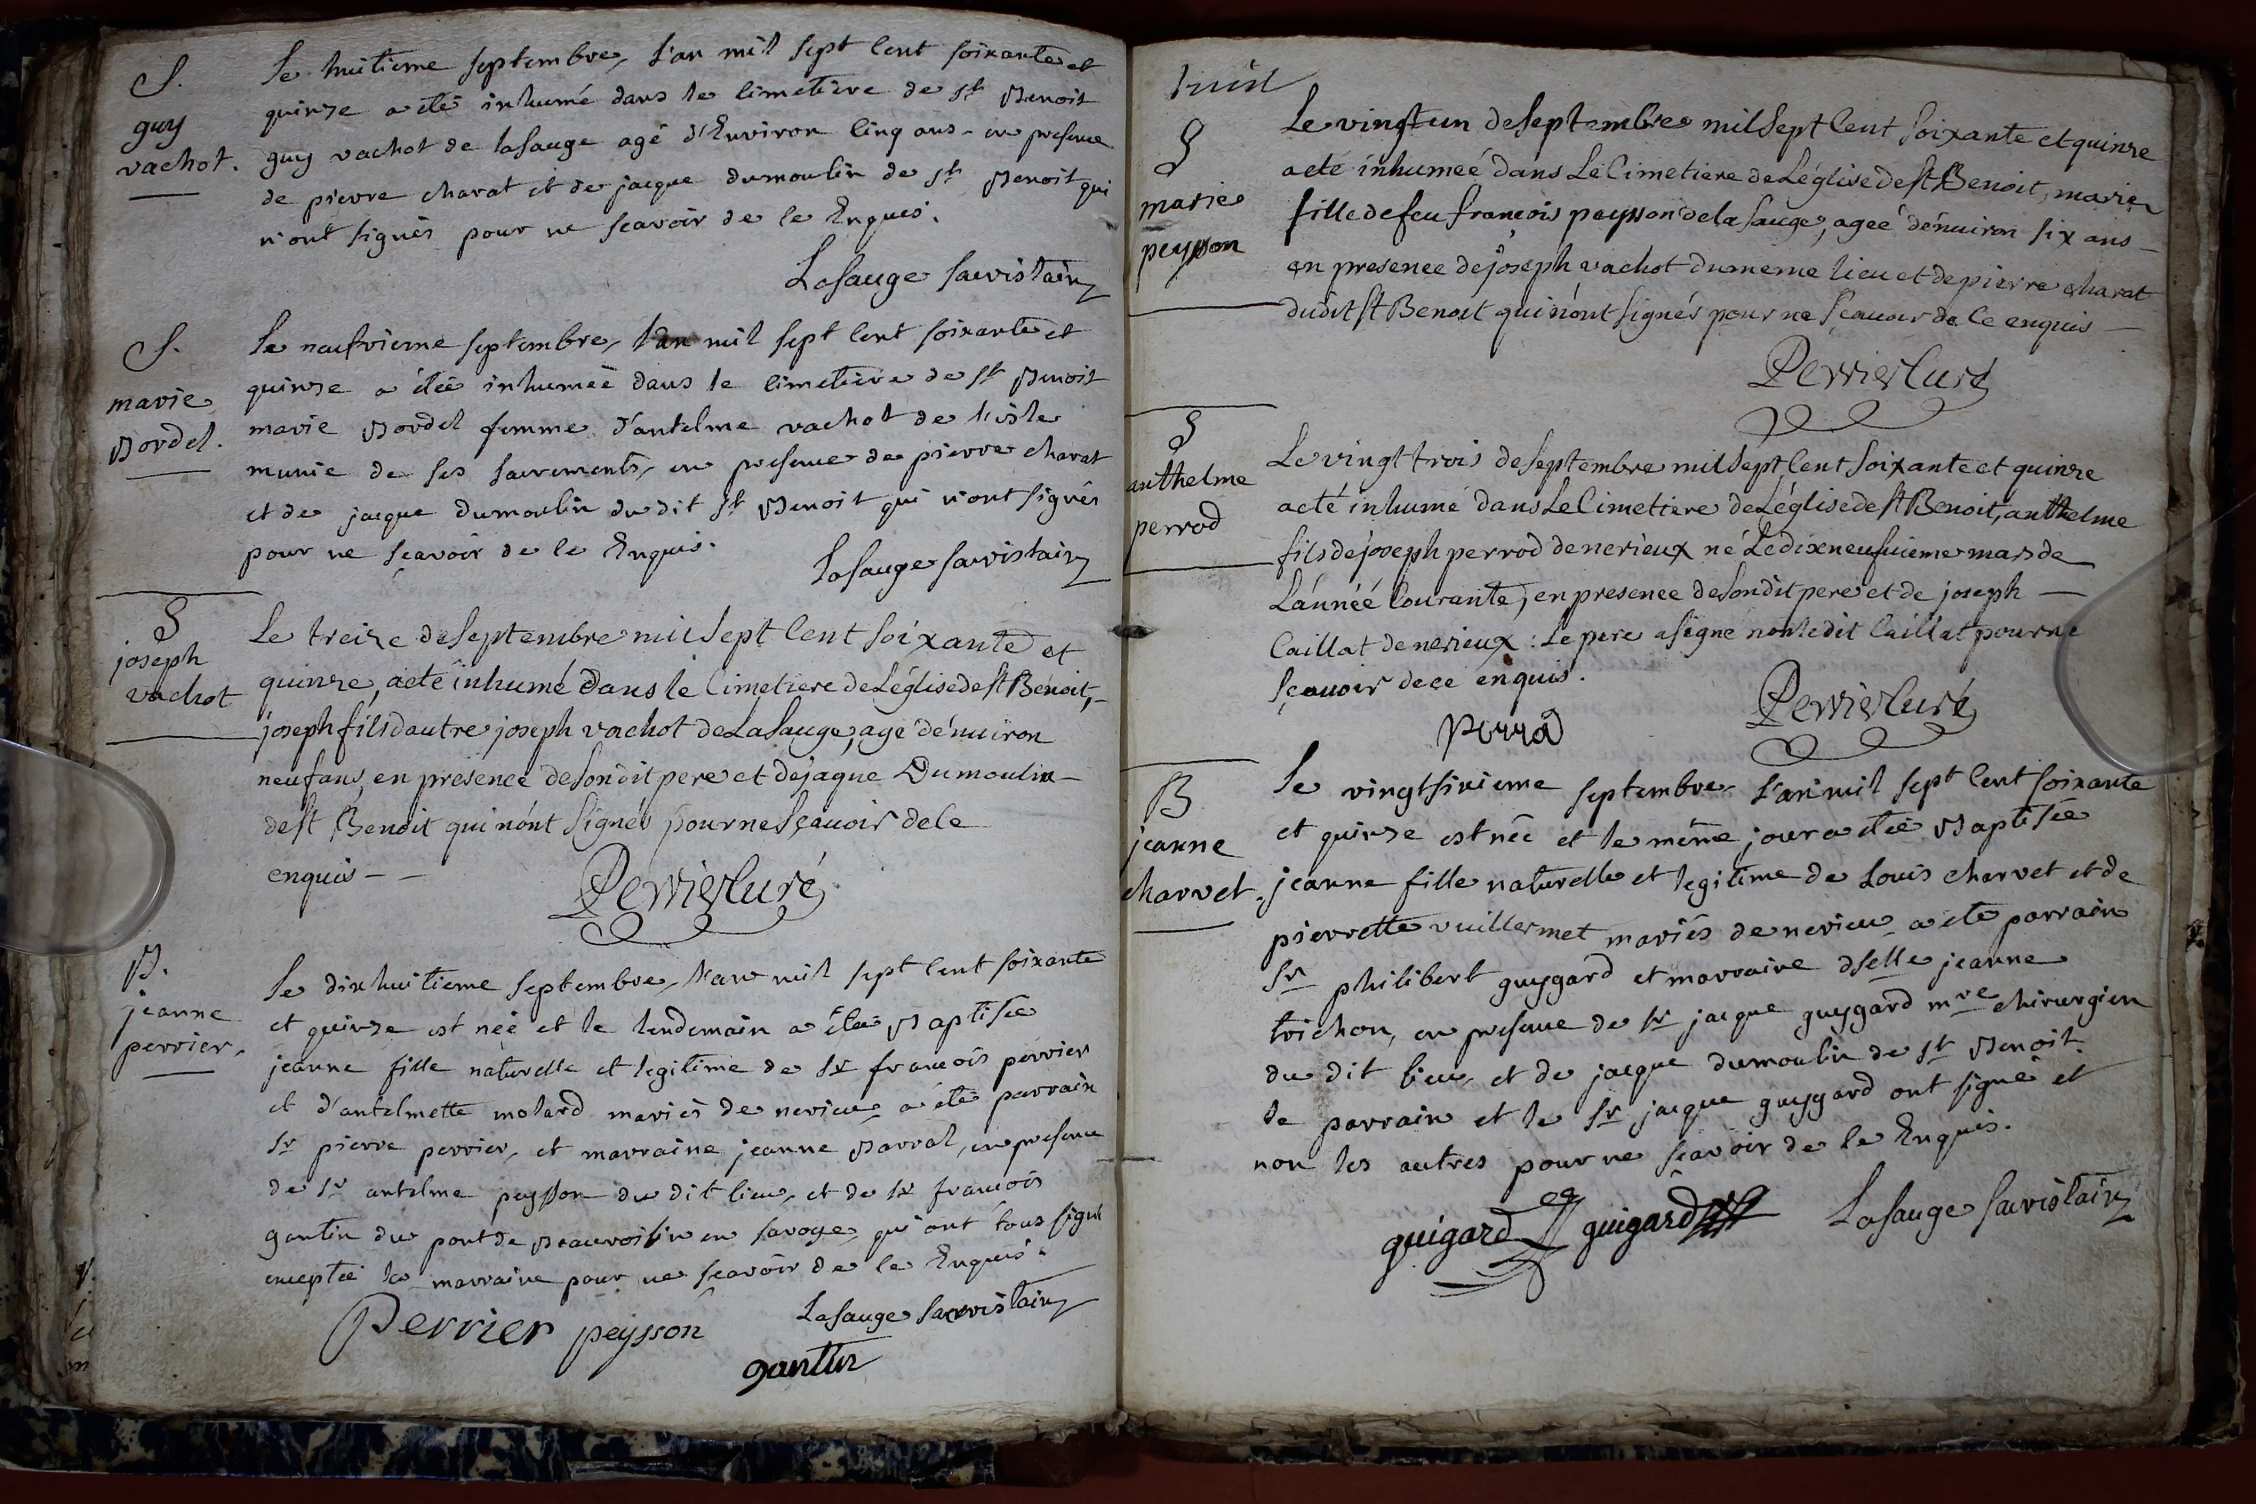 S.
guy
vachot.
Le huitieme septembre, l'an mil sept cent soixante et
quinze a été inhumé dans le cimetiere de st Benoit
guy vachot de lasauge agé d'Environ cinq ans - en presence
de pierre charat et de jacque dumoulin de st Benoit qui
n'ont signés pour ne sçavoir de ce Enquis.
Lasauge sacristain
S.
marie
Bordel.
Le neufvieme septembre, l'an mil sept cent soixante et
quinze a étée inhumeé dans le cimetiere de st Benoit
marie Bordel femme d'antelme vachot de l'isle
munie de ses sacrements, en presence de pierre charat
et de jacque dumoulin du dit st Benoit qui n'ont signés
pour ne sçavoir de ce Enquis.
Lasauge sacristain
S
joseph
vachot
Le treize de septembre mil sept cent soixante et
quinze, a eté inhumé dans le Cimetiere de L'église de st Benoit,
joseph fils d'autre joseph vachot de La Sauge, agé d'énuiron
neuf ans, en présence de son dit pere et de jaque Dumoulin -
de st Benoit qui n'ónt signés pour ne sçauoir de ce
enquis - -
Perrier Curé
B.
jeanne
perrier.
Le dixhuitieme septembre, l'an mil sept cent soixante
et quinze est neé et le lendemain a étée Baptisée
jeanne fille naturelle et legitime de sr francois perrier
et d'antelmette molard mariés de nerieu, a été parrain
sr pierre perrier, et marraine jeanne Barral, en presence
de sr antelme peysson du dit lieu, et de sr francois
gantin du pont de Beauvoisin en savoye, qui ont tous signé
exceptée la marraine pour ne sçavoir de ce Enquis.
Perrier peysson Lasauge sacristain
gantin
huit
S
marie
peysson
Le vingt un de septembre mil sept Cent soixante et quinze
a eté inhumeé dans Le Cimetiere de L'église de st Benoit, marie
fille de feu françois peysson de la sauge, ageé d'énuiron six ans -
en presence de joseph vachot du meme lieu et de pierre charat
dudit st Benoit qui n'ónt signés pour ne sçauoir de ce enquis -
Perrier Curé
S
anthelme
perrod
Le vingt trois de septembre mil sept Cent soixante et quinze
a eté inhumé dans Le Cimetiere de L'église de st Benoit, anthelme
fils de joseph perrod de nerieux né Le dix neufuieme mars de
L'ánnéé Courante, en presence de son dit pere et de joseph -
Caillat de nerieux : Le pere a signé non ledit Caillat pour ne
sçauoir de ce enquis.
perrod Perrier Curé
B
jeanne
charvet.
Le vingtsixieme septembre, l'an mil sept cent soixante
et quinze est née et le même jour a étée Baptisée
jeanne fille naturelle et legitime de Louis charvet et de
pierrette vuillermet mariés de nerieu, a été parrain
sr philibert guygard et marraine dselle jeanne
trichon, en presence de sr jacque guygard mre chirurgien
du dit lieu, et de jacque dumoulin de st Benoit.
le parrain et le sr jacque guygard ont signé et
non les autres pour ne sçavoir de ce Enquis.
guigard guigard Lasauge sacristain